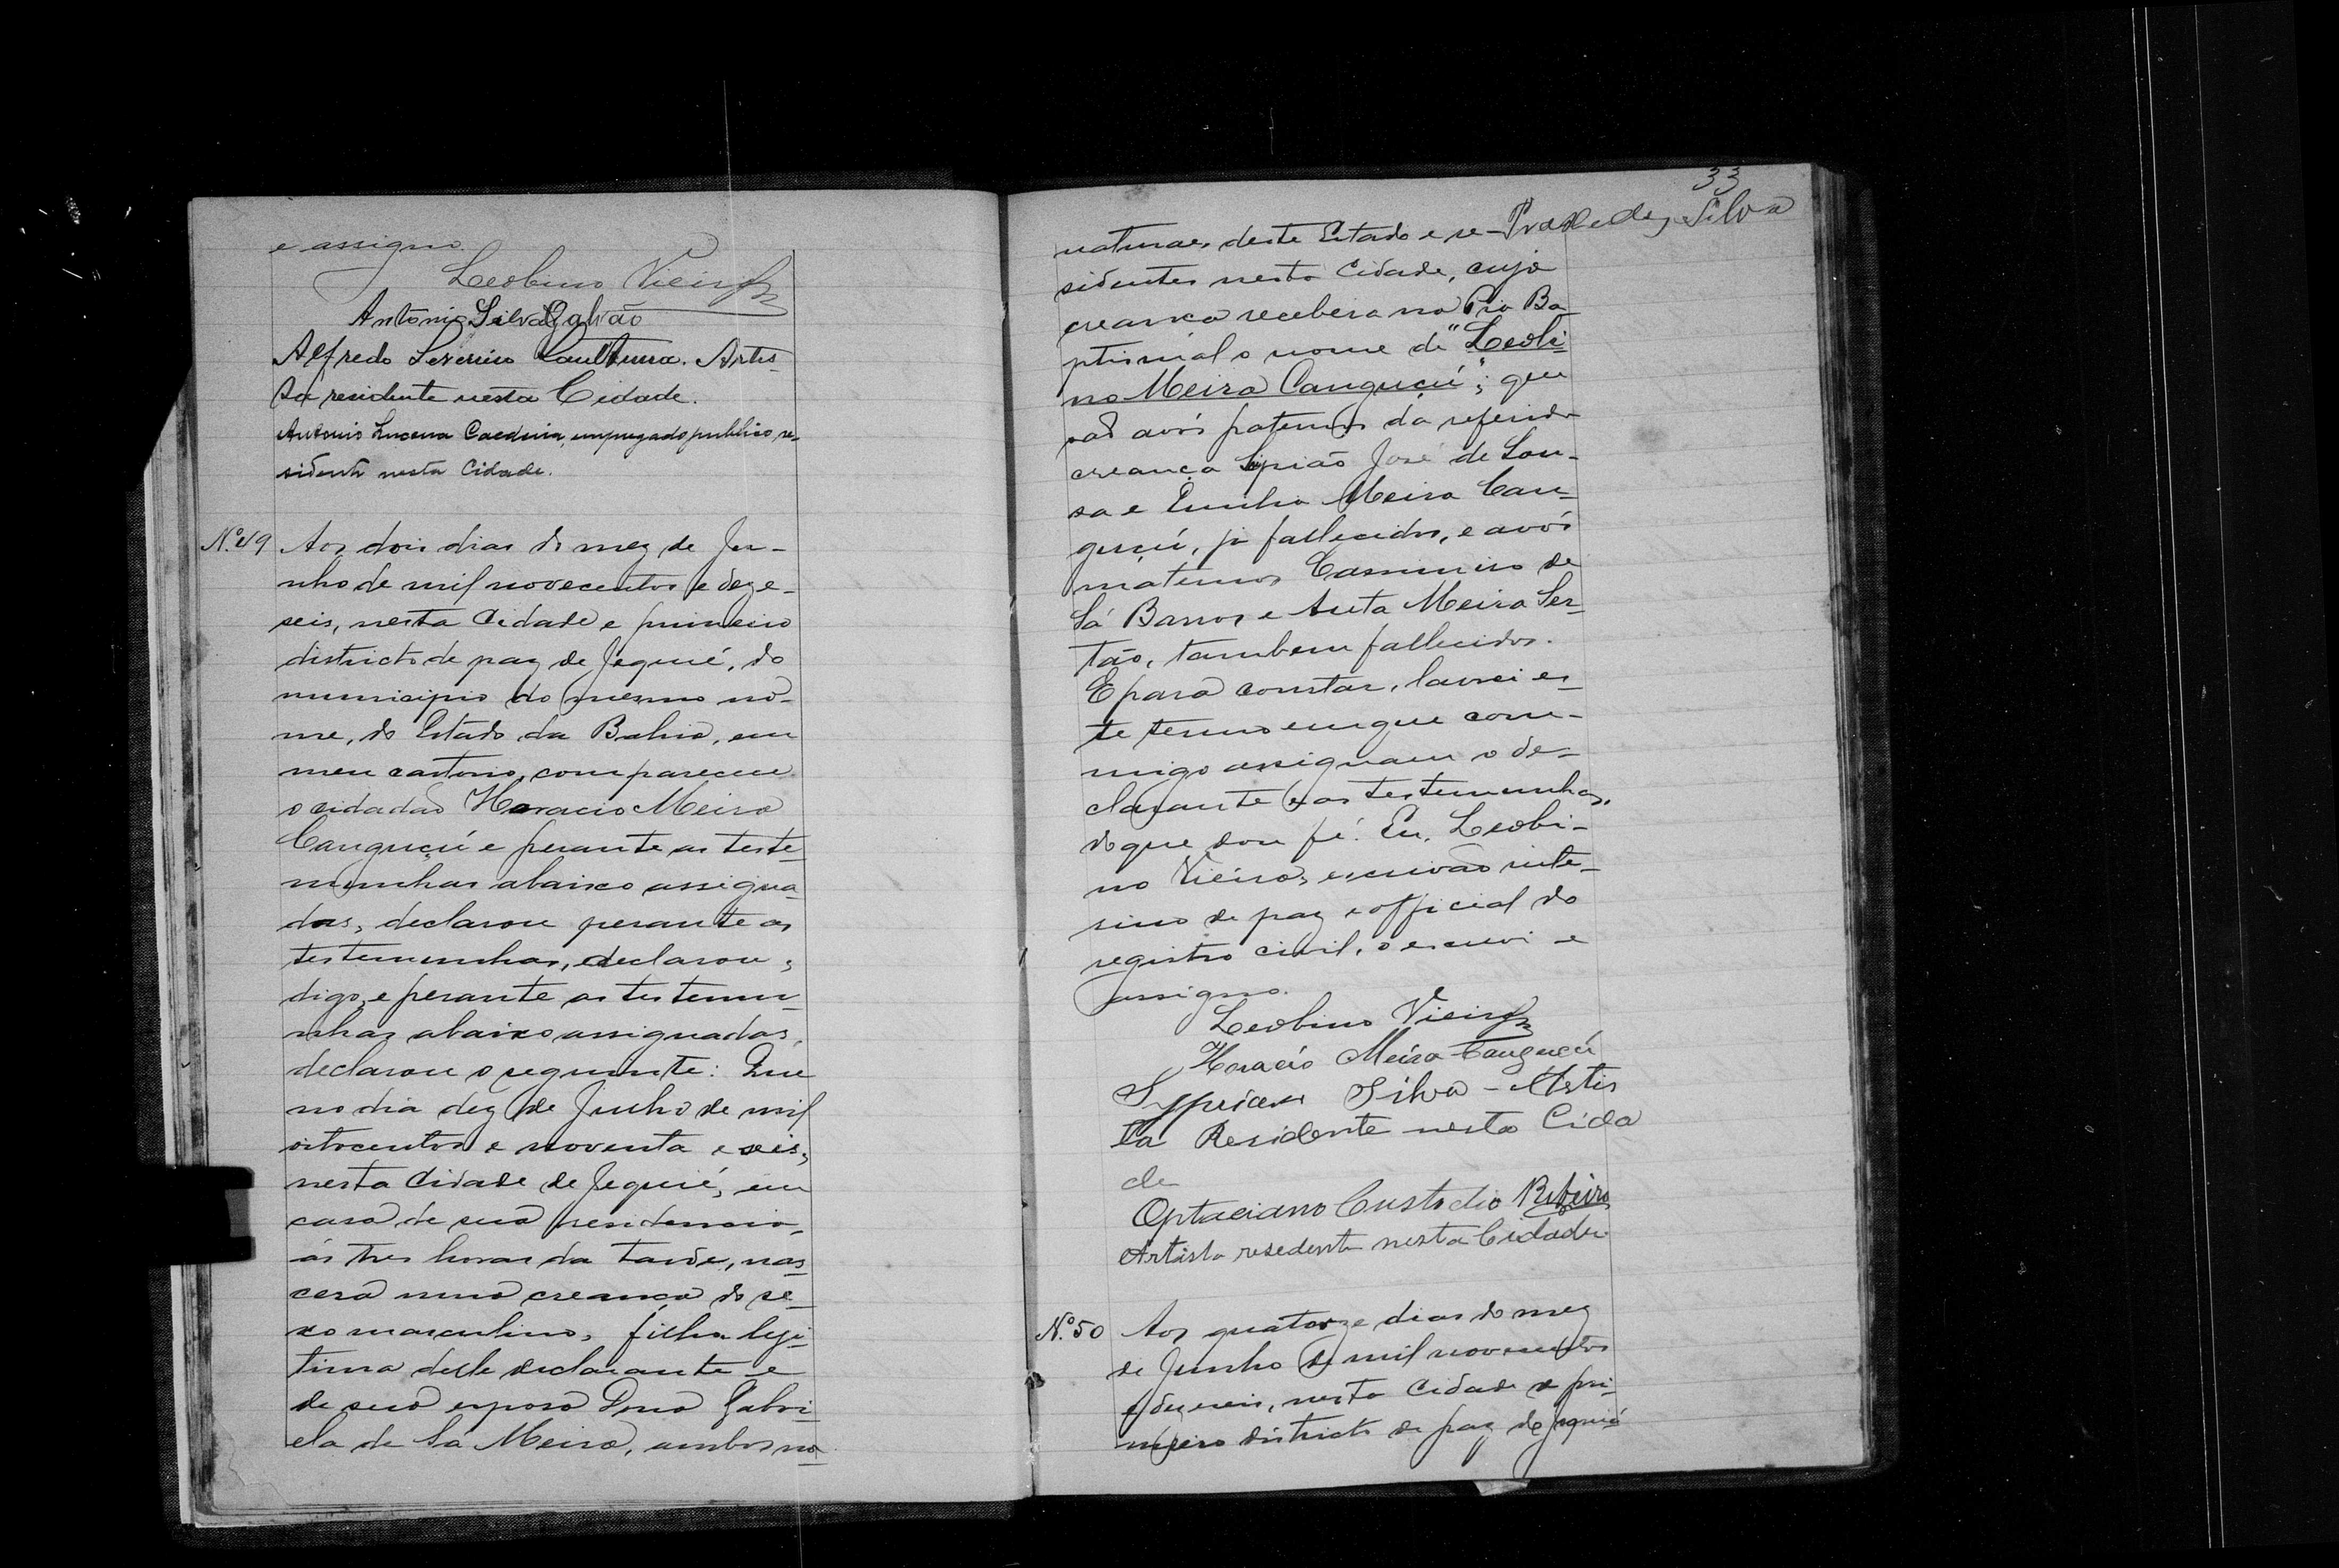 e assigno.
Leobino Vieira
Antonio Silva Galvão
Alfredo Severino Artis-
ta residente nesta Cidade.
Antonio Lucena empregado publico, re-
sidente nesta Cidade.
N.º 49 Aos dois dias do mez de Ju-
nho de mil novecentos e deze-
seis, nesta Cidade e primeiro
districto de paz de Jequié, do
municipio do mesmo no-
me, do Estado da Bahia, em
meu cartorio, compareceu
o cidadão Horacio Meira
Canguçú e perante as teste-
munhas abaixo assigna-
das, declarou perante as
testemunhas, declarou,
digo, e perante as testemu-
nhas abaixo assignadas,
declarou o seguinte: Que
no dia dez de Junho de mil
oitocentos e noventa e seis,
nesta Cidade de Jequié, em
casa de sua residencia,
ás tres horas da tarde, nas-
cera uma creança do se-
xo masculino, filha legi-
tima delle declarante e
de sua esposa Dona Gabri-
ela de Sá Meira, ambos na-
33
Praxedes Silva
turaes deste Estado e re-
sidentes nesta Cidade, cuja
creança recebera na Pia Ba-
ptismal o nome de "Leobi-
no Meira Canguçú"; que
são avós paternos da referida
creança José de Sou-
sa e Emilia Meira Can-
guçú, já fallecidos, e avós
maternos Casemiro de
Sá Barros e Auta Meira Ser-
tão, tambem fallecidos.
E para constar, lavrei es-
te termo em que com-
migo assignam o de-
clarante e as testemunhas,
do que dou fé. Eu, Leobi-
no Vieira, escrivão inte-
rino de paz e official do
registro civil, o escrevi e
assigno.
Leobino Vieira
Horacio Meira Canguçú
Silva - Artis
ta Residente nesta Cida
de
Optaciano Custodio Ribeiro
Artista resedente nesta Cidade
N.º 50 Aos quatorze dias do mez
de Junho de mil novecentos
e dezeseis, nesta Cidade e pri-
meiro districto de paz de Jequié